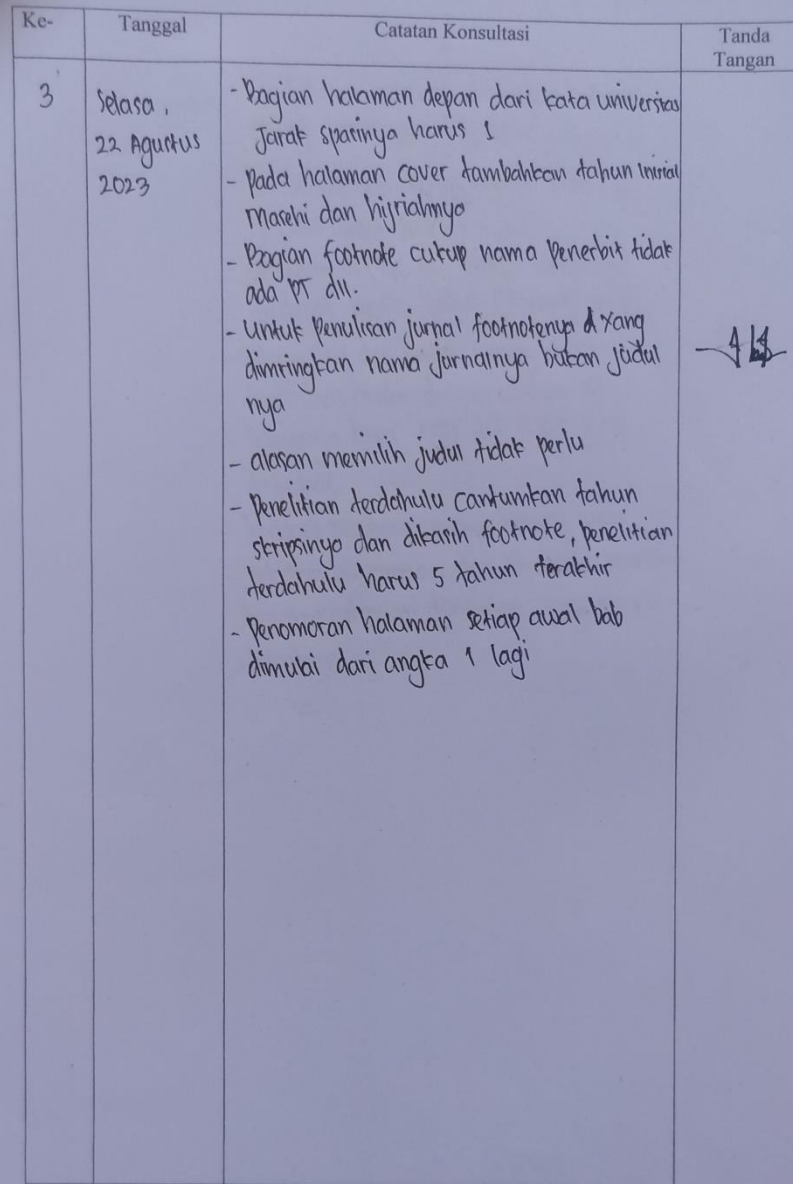 Ke-
Tanggal
Catatan Konsultasi
Tanda
Tangan
3
Selasa,
22 Agustus
2023
- Bagian halaman depan dari kata universitas
Jarak spasinya harus 1
- Pada halaman cover tambahkan tahun inisial
Masehi dan hijriahnya
- Bagian footnote cukup nama Penerbit tidak
ada PT dll.
- Untuk Penulisan jurnal footnotenya yang
dimiringkan nama jurnalnya bukan judul
nya
- alasan memilih judul tidak perlu
- Penelitian terdahulu cantumkan tahun
skripsinya dan dikasih footnote, penelitian
terdahulu harus 5 tahun terakhir
- Penomoran halaman setiap awal bab
dimulai dari angka 1 lagi